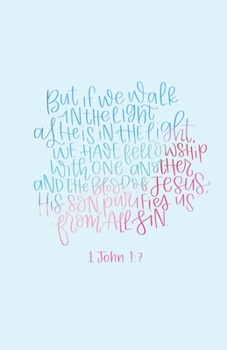 But if we walk
in the light
as He is in the light,
we have fellowship
with one another
and the blood of Jesus,
His Son, purifies us
from all sin.
1 John 1:7